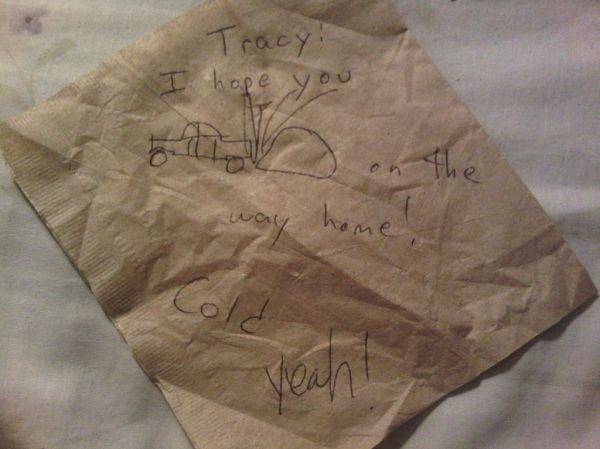 Tracy!
I hope you
on the
way home!
Cold
yeah!